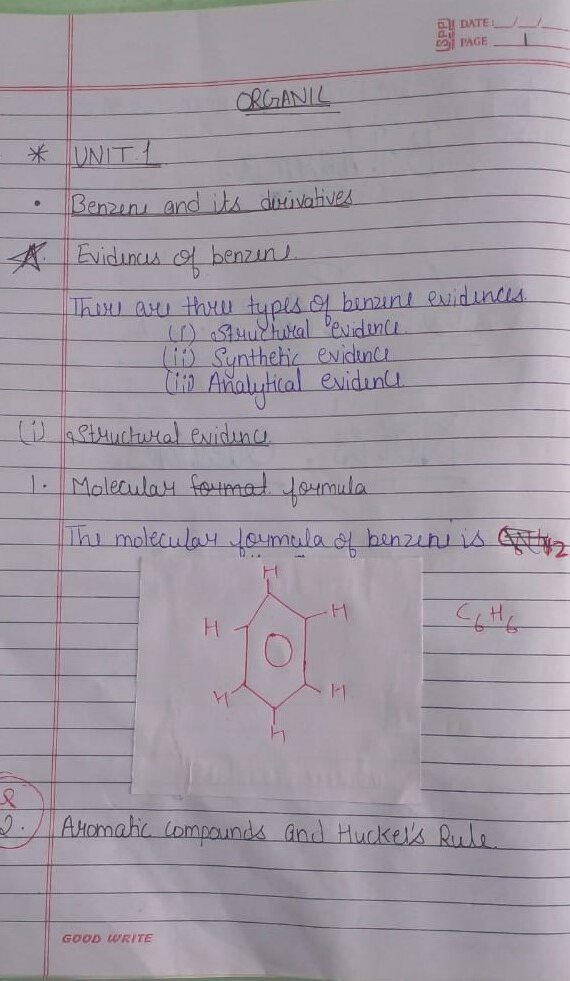 SPP DATE: __/__/__
PAGE 1
ORGANIC
* UNIT.1
• Benzene and its derivatives
Evidences of benzene.
There are three types of benzene evidences.
(i) Structural evidence.
(ii) Synthetic evidence
(iii) Analytical evidence.
(i) Structural evidence.
1. Molecular format formula
The molecular formula of benzene is
C6H6
H
H
H
H
H
H
2. Aromatic compounds and Huckel's Rule.
GOOD WRITE